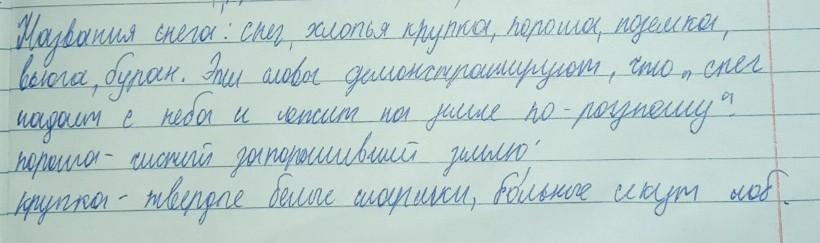 Названия снега: снег, хлопья крупка, пороша, поземка,
вьюга, буран. Эти слова демонстраируют, что „снег
падает с неба и лежит на земле по-разному".
пороша - чистый запорошивший землю
крупка - твердые белые шарики, больное секут лоб.